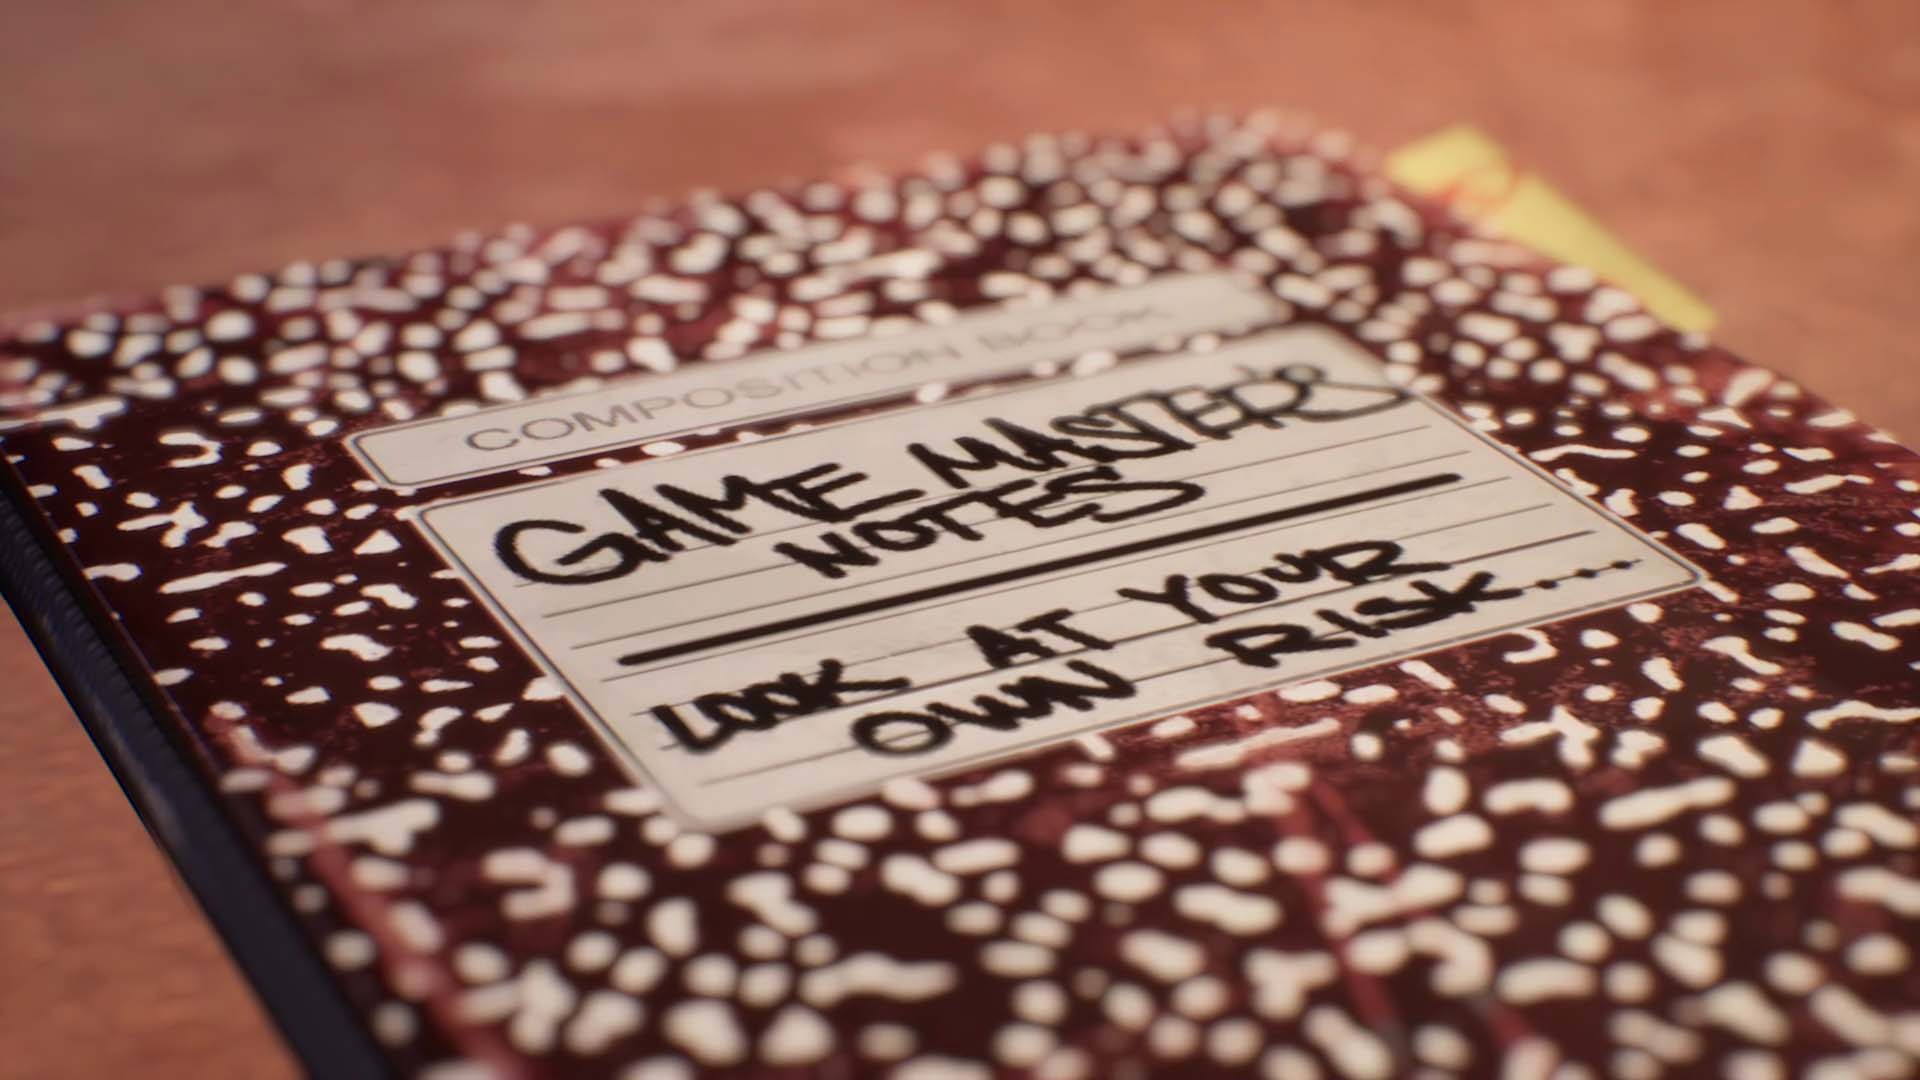 COMPOSITION BOOK
GAME MASTERS
NOTES
LOOK AT YOUR
OWN RISK.....